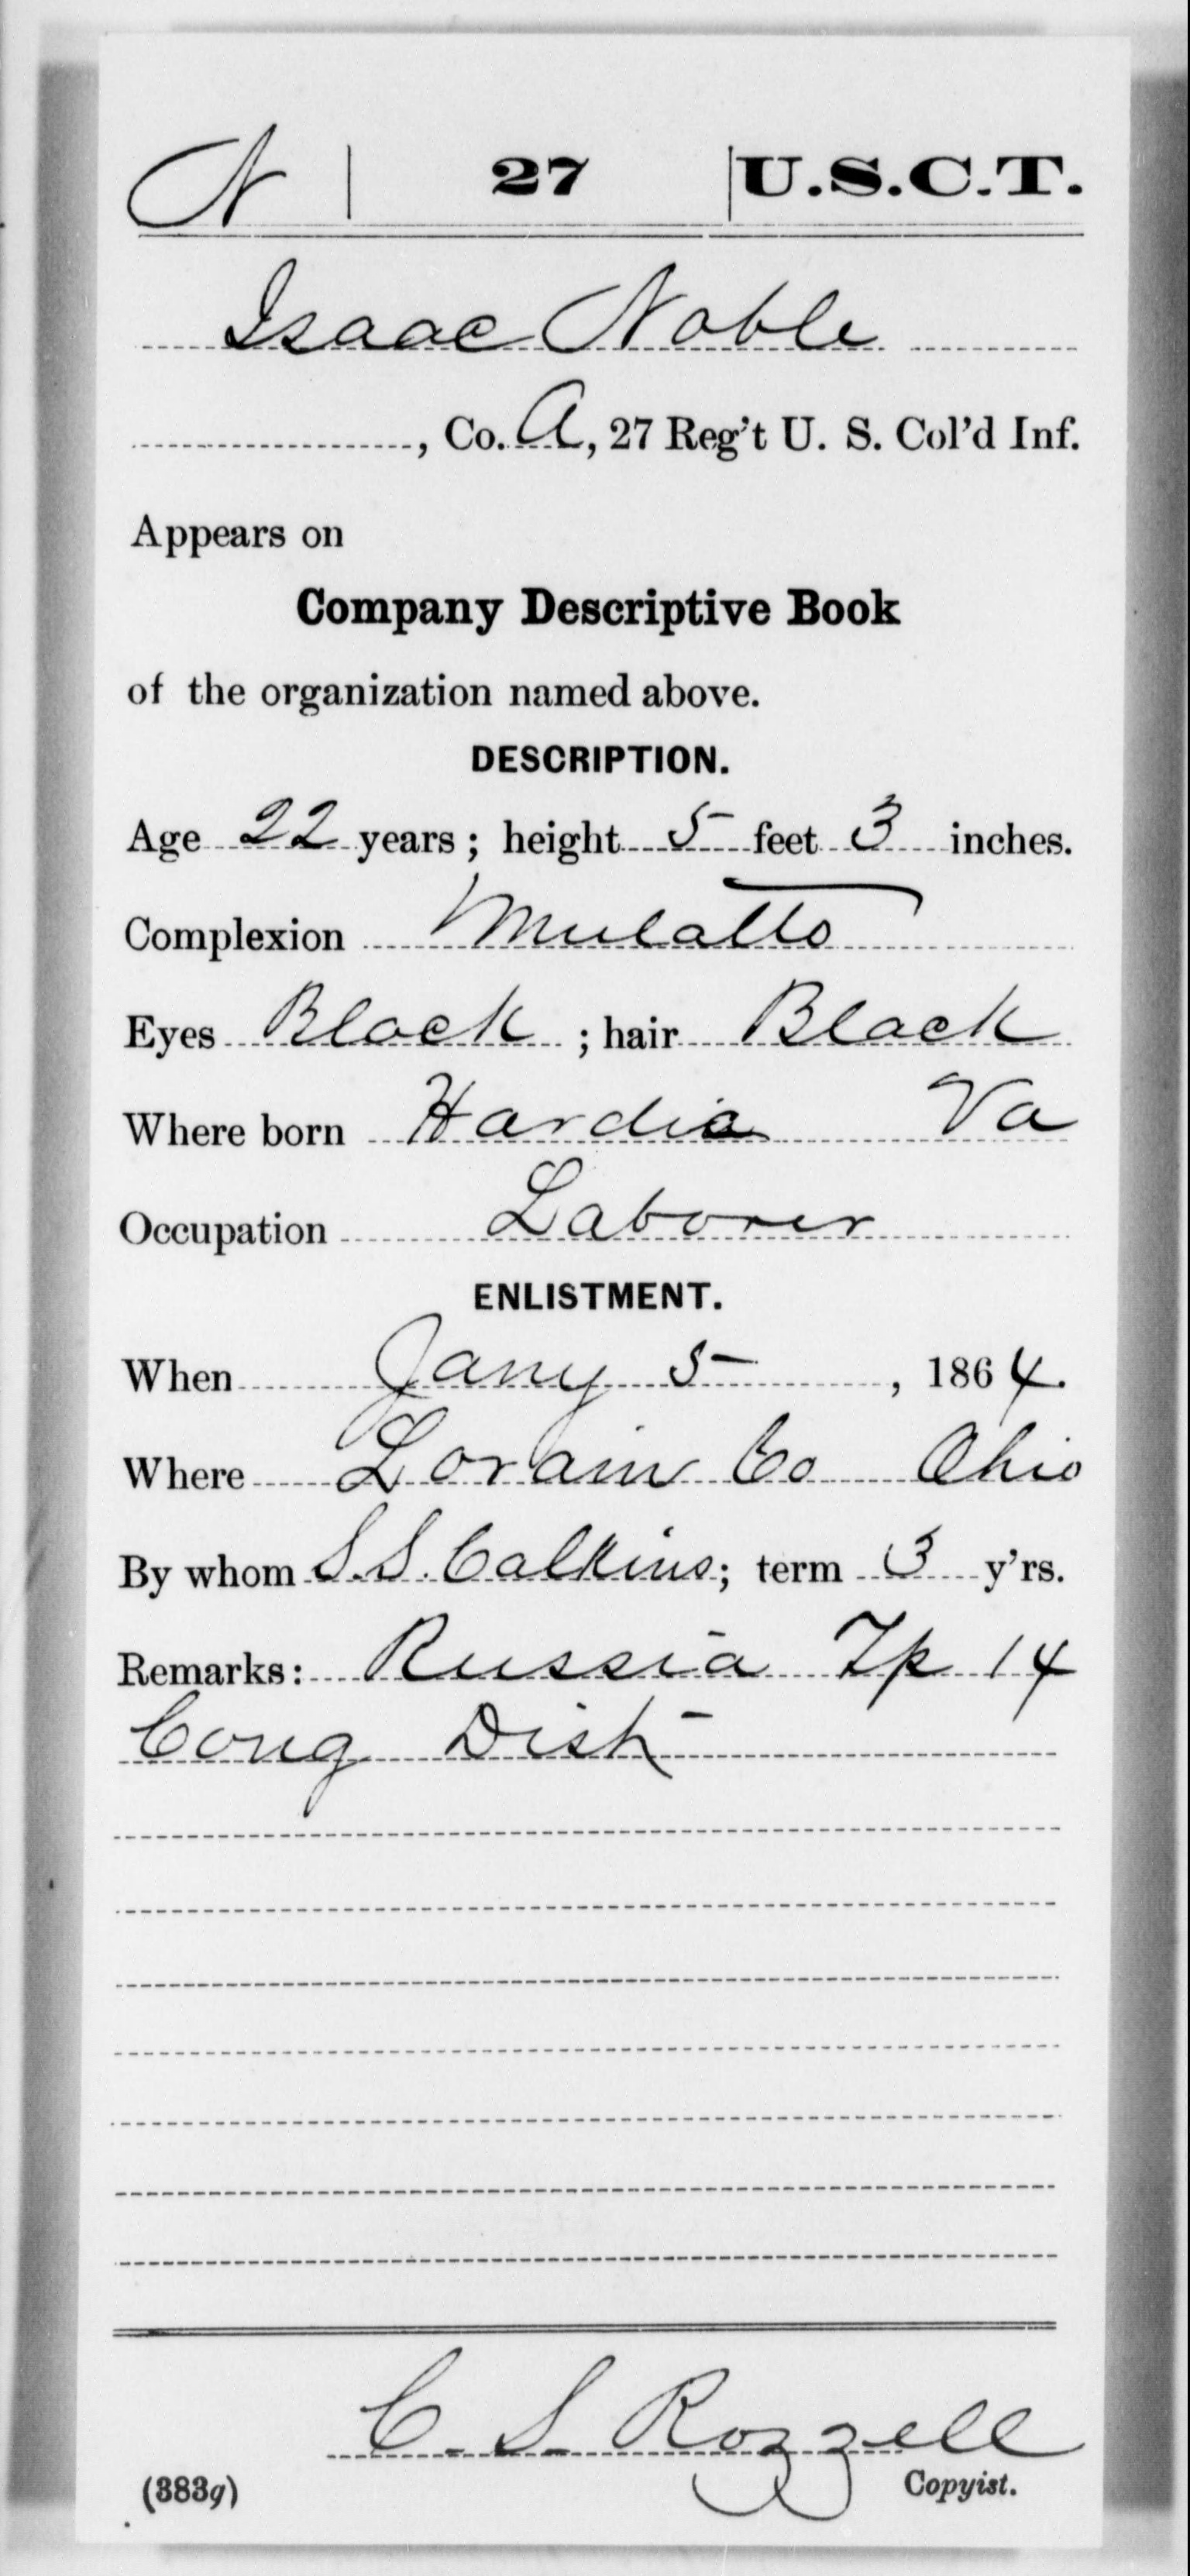 N | 27 | U.S.C.T.
Isaac Noble
, Co. A, 27 Reg't U. S. Col'd Inf.
Appears on
Company Descriptive Book
of the organization named above.
DESCRIPTION.
Age 22 years; height 5 feet 3 inches.
Complexion Mulatto
Eyes Black; hair Black
Where born Hardia Va
Occupation Laborer
ENLISTMENT.
When Jany 5, 1864.
Where Lorain Co Ohio
By whom S.S. Calkins; term 3 y'rs.
Remarks: Russia Tp 14
Cong Dist
C. S. Rozzell
(383g) Copyist.